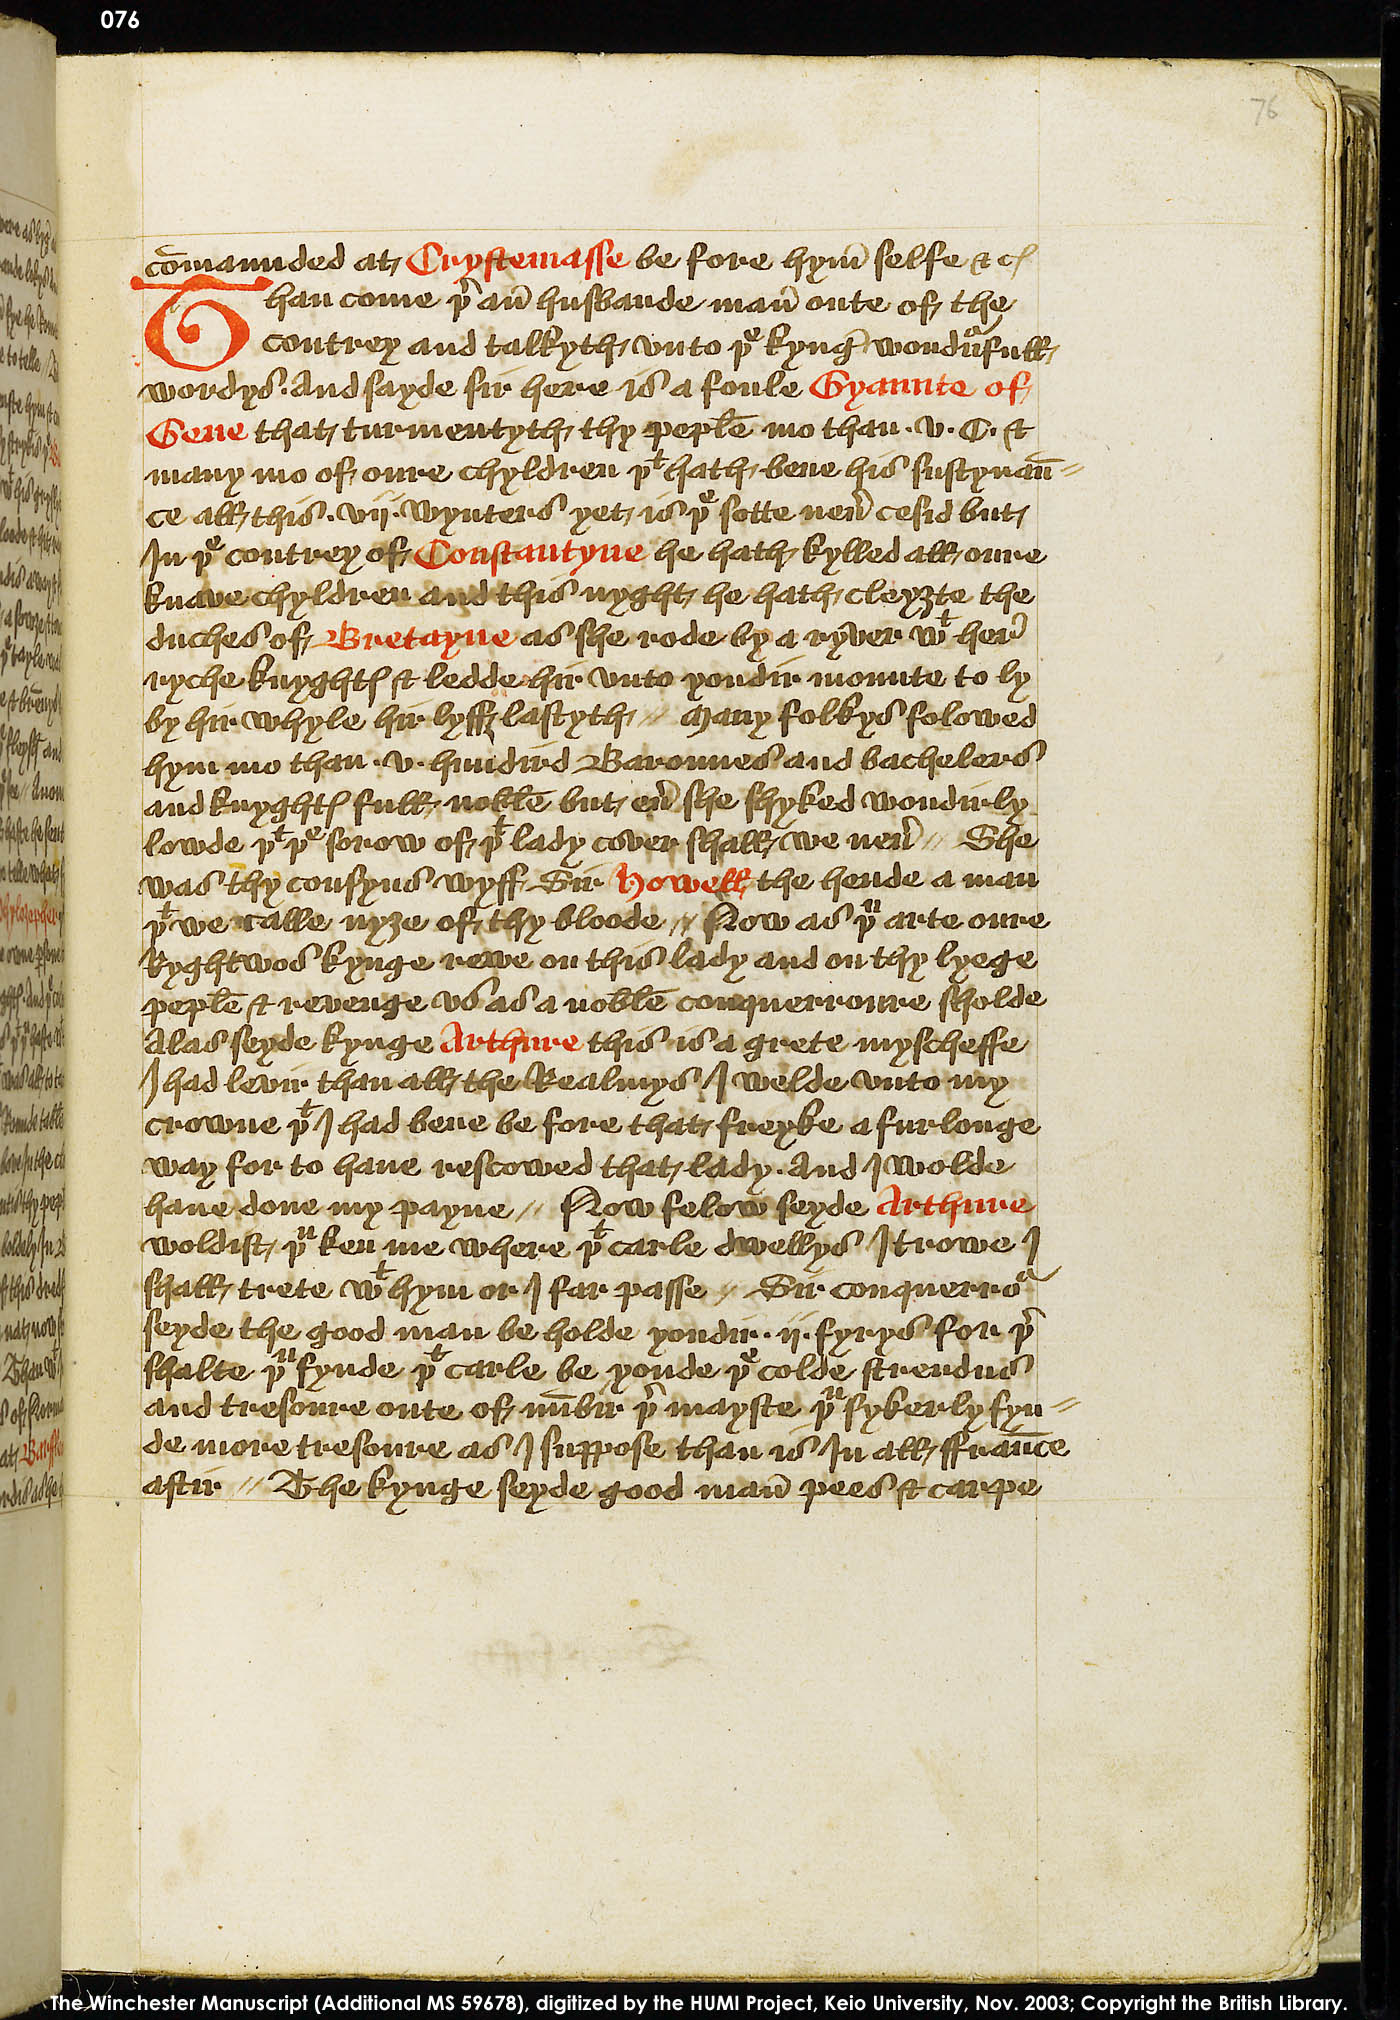 076
76
cōmaunded at Crystemasse be fore hym̄ selfe & cꝭ
Than come þʳ an̄ husbande man̄ oute of the
contrey and talkyth vnto þᵉ kynḡ wondᵘrfull
wordys. And sayde sir here is a foule Gyaunte of
Gene that turmentyth thy peple mo than .v. C. &
many mo of oure chyldren þᵗ hath bene his sustynaū=
ce all this .vij. wynters yet is þᵉ sotte neuͬ cesid but
In þᵉ contrey of Constantyne he hath kylled all oure
knave chyldren and this nyght he hath cleyȝte the
duches of Bretayne as she rode by a ryver wᵗ her̄
ryche knyghtꝭ & ledde hir vnto yondir mounte to ly
by hir whyle hir lyff lastyth // Many folkys folowed
hym mo than .v. hundird Barounes and bachelers
and knyghtꝭ full noble but euͬ she shryked wondirly
lowde þᵗ þᵉ sorow of þᵗ lady cover shall we neuͬ // She
was thy consyns wyff Sir Howell the hende a man
þᵗ we calle nyȝe of thy bloode // Now as þᵘ arte oure
Ryghtwos kynge rewe on this lady and on thy lyege
peple & revenge vs as a noble conquerroure sholde
Alas seyde kynge Arthure this is a grete myscheffe
I had levir than all the Realmys I welde vnto my
crowne þᵗ I had bene be fore that freyke a furlonge
way for to haue rescowed that lady. And I wolde
haue done my payne // Now felow seyde Arthure
woldist þᵘ ken me where þᵗ carle dwellys I trowe I
shall trete wᵗ hym or I far passe // Sir conquerroʳ
seyde the good man be holde yondir .ij. fyrys for þʳ
shalte þᵘ fynde þᵗ carle be yonde þᵉ colde strendus
and tresoure oute of nūbir þʳ mayste þᵘ sykerly fyn=
de more tresoure as I suppose than is In all ffraūce
aftir // The kynge seyde good man̄ pees & carpe
The Winchester Manuscript (Additional MS 59678), digitized by the HUMI Project, Keio University, Nov. 2003; Copyright the British Library.